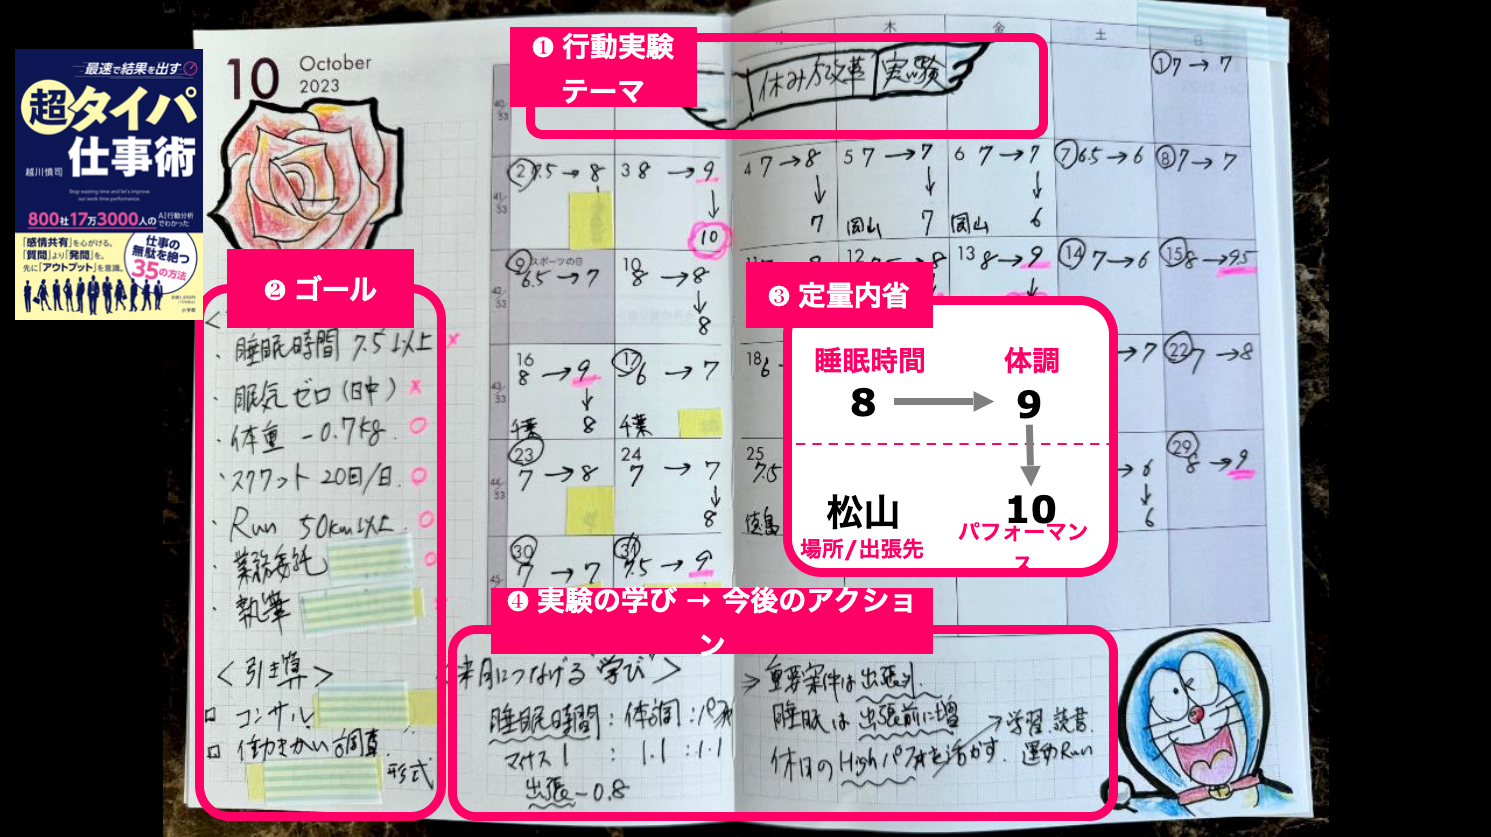 最速で結果を出す
超タイパ
仕事術
越川慎司
Stop wasting time and let's improve
our work time performance.
800社17万3000人の AI行動分析でわかった
「感情共有」を心がける。
「質問」より「発問」を。
先に「アウトプット」を意識。
仕事の
無駄を絶つ
35の方法
小学館
10 October
2023
❶ 行動実験
テーマ
木 金 土 日
休み方改革 実験
① 7 → 7
40/53
41/53
② 7.5 → 8
3 8 → 9
↓
10
4 7 → 8
↓
7
5 7 → 7
↓
岡山 7
6 7 → 7
↓
岡山 6
⑦ 6.5 → 6
⑧ 7 → 7
42/53
⑨ スポーツの日
6.5 → 7
10
8 → 8
↓
8
12
13 8 → 9
⑭ 7 → 6
⑮ 8 → 9.5
43/53
16
8 → 9
↓
千葉 8
⑰ 6 → 7
千葉
18 6
→ 7
㉒ 7 → 8
44/53
㉓
7 → 8
24
7 → 7
↓
8
25
7.5
徳島
→ 6
↓
6
㉙
8 → 9
45/
㉚
7 → 7
㉛
7.5 → 9
❷ ゴール
・睡眠時間 7.5以上 ×
・眠気ゼロ(日中) ×
・体重 -0.7kg. ○
・スクワット 20回/日. ○
・Run 50km以上. ○
・業務委託 ○
・執筆
<引き算>
□ コンサル
□ 働きかい調査
形式
❸ 定量内省
睡眠時間 体調
8 → 9
↓
松山 10
場所/出張先
パフォーマン
ス
❹ 実験の学び → 今後のアクショ
ン
<来月につなげる"学び">
睡眠時間:体調:パフォ
マイナス1 : 1.1 : 1.1
出張 -0.8
⇒ 重要案件は出張外.
睡眠は出張前に増
休日のHighパフォを活かす
→ 学習.読書.
運動Run